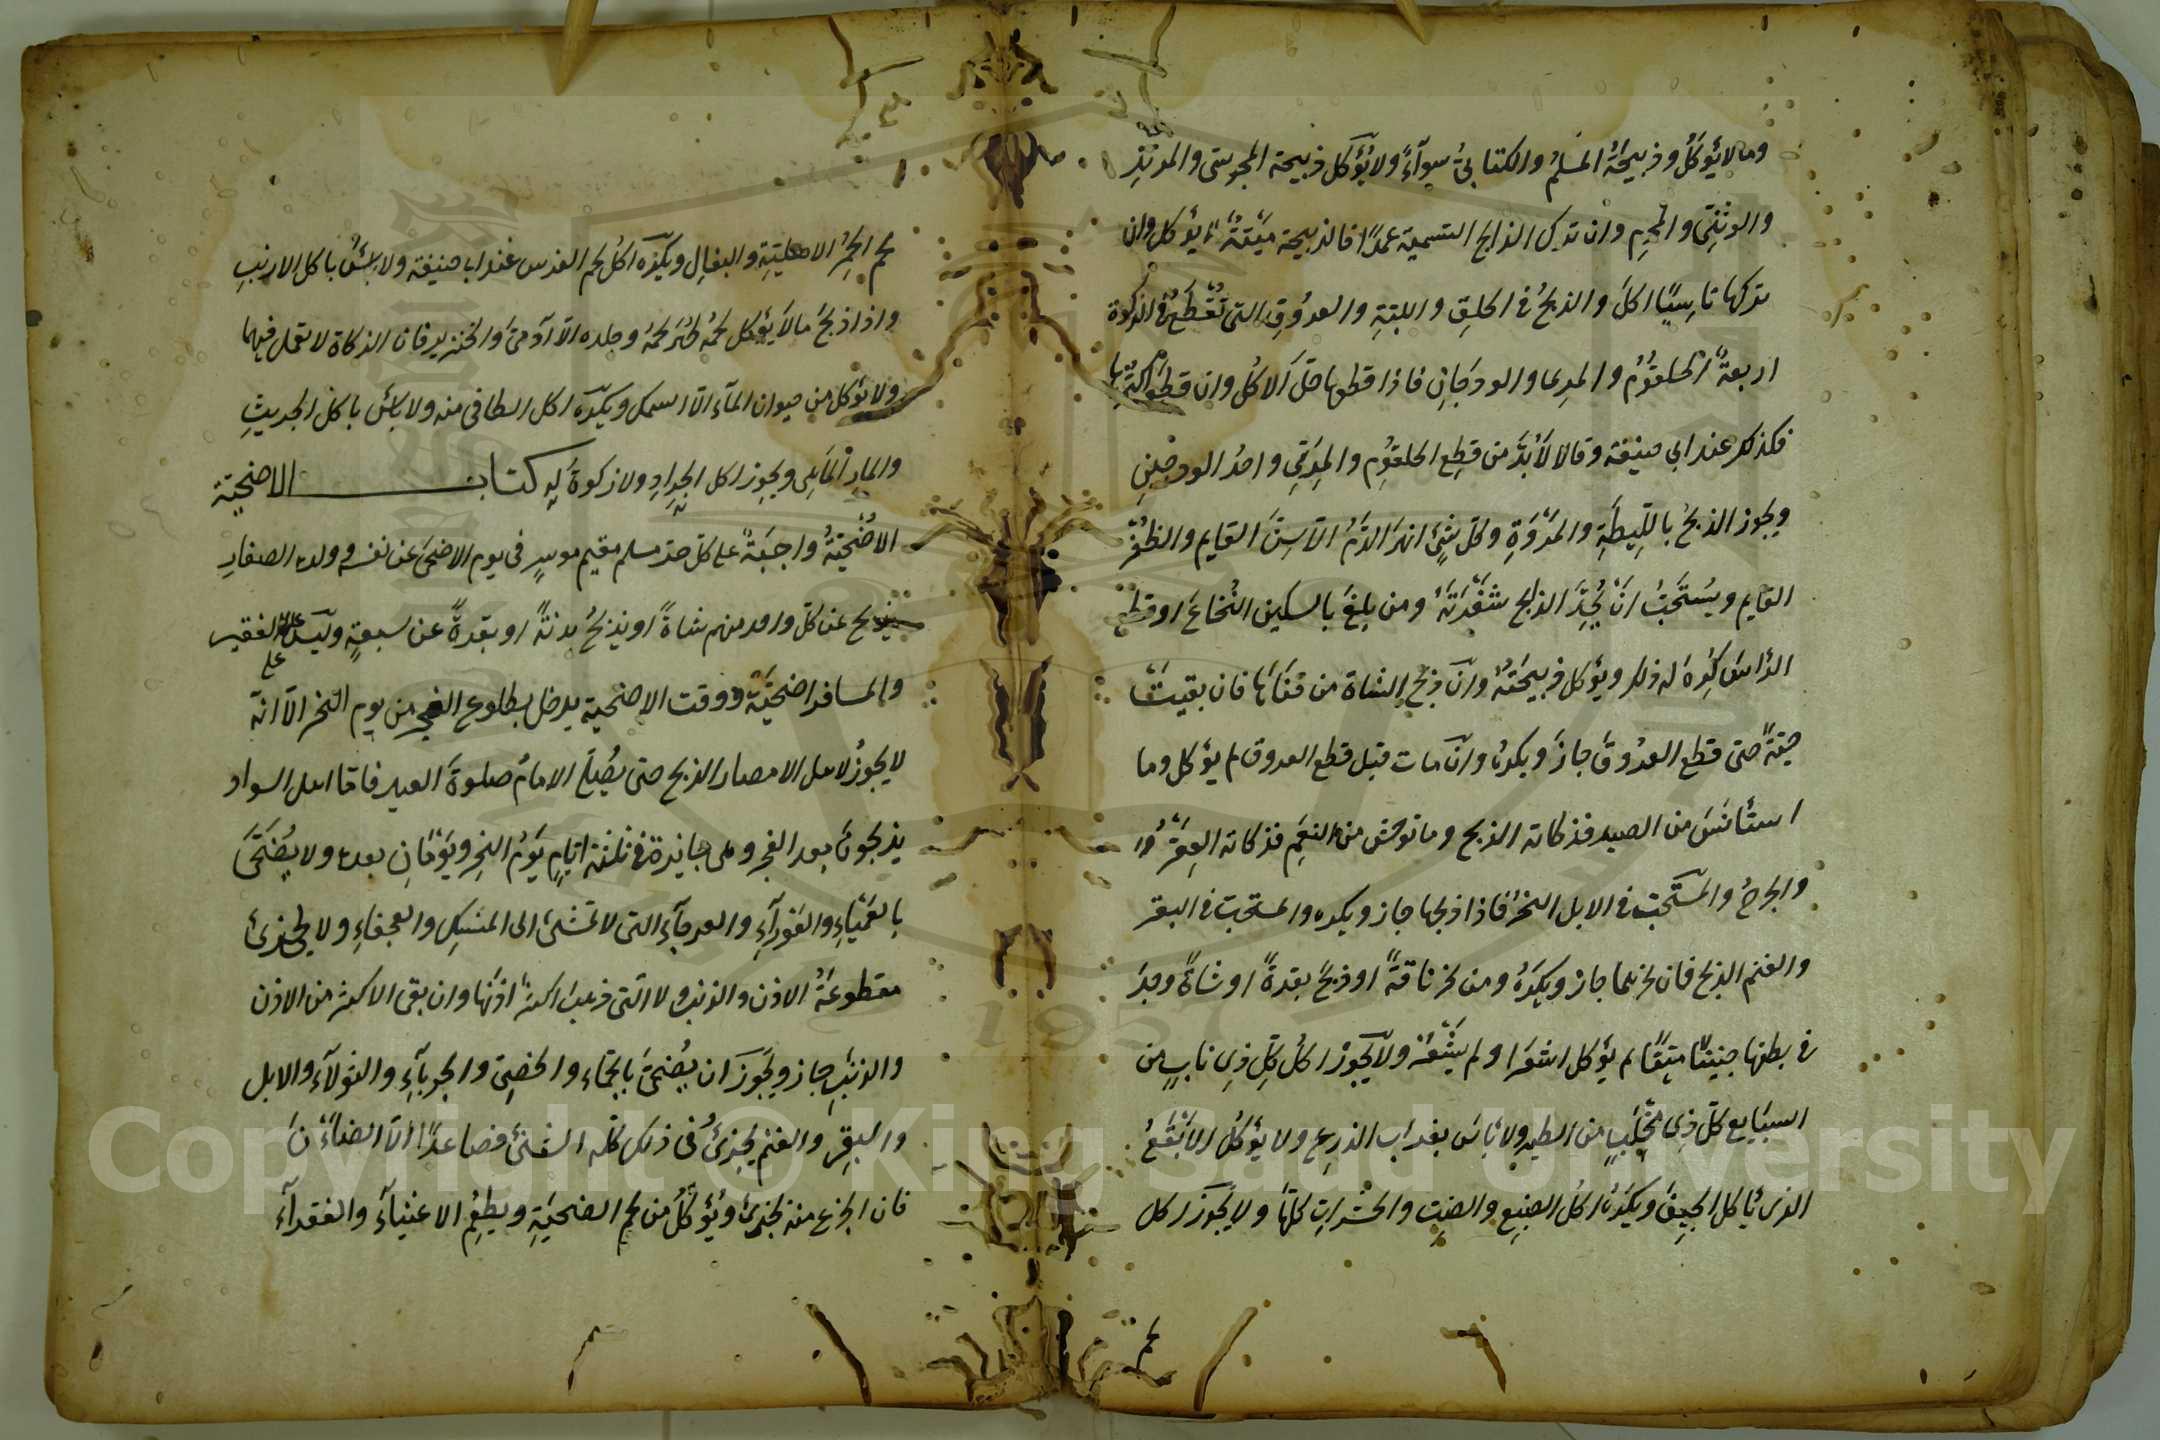 وما لا يؤكل وذبيحة المسلم والكتابي سوآء ولا يؤكل ذبيحة المجوسي والمرتد
والوثني والمحرم وان ترك الذابح التسمية عمدا فالذبيحة ميتة لا يؤكل وان
تركها ناسيا اكل والذبح في الحلق واللبة والعروق التي تقطع في الذكوة
اربعة الحلقوم والمرى والودجان فاذا قطعها حل الاكل وان قطع اكثرها
فكذلك عند ابي حنيفة وقالا لابد من قطع الحلقوم والمرئ واحد الودجين
ويجوز الذبح بالليطة والمروة وكل شئ انهر الدم الا السن القايم والظفر
القايم ويستحب ان يحد الذابح شفرته ومن بلغ بالسكين النخاع او قطع
الرأس كره له ذلك ويؤكل ذبيحته وان ذبح الشاة من قفاها فان بقيت
حية حتى قطع العروق جاز ويكره وان مات قبل قطع العروق لم يؤكل وما
استأنس من الصيد فذكاته الذبح وما توحش من النعم فذكاته العقر
والجرح والمستحب في الابل النحر فاذا ذبحها جاز ويكره والمستحب في البقر
والغنم الذبح فان نحرهما جاز ويكره ومن نحر ناقة او ذبح بقرة او شاة وجد
في بطنها جنينا ميتا لم يؤكل اشعر او لم يشعر ولا يجوز اكل كل ذي ناب من
السبايع كل ذي مخلب من الطير ولا بأس بغراب الزرع ولا يؤكل الابقع
الذي يأكل الجيف ويكره اكل الضبع والضب والحشرات كلها ولا يجوز اكل
لحم
لحم الحمر الاهلية والبغال ويكره اكل لحم الفرس عند ابي حنيفة ولا بأس باكل الارنب
واذا ذبح ما لا يؤكل لحمه طهر لحمه وجلده الا آدمي والخنزير فان الذكاة لا تعمل فيهما
ولا يؤكل من حيوان المآء الا السمك ويكره اكل الطافي منه ولا بأس باكل الجريث
والمارماهي ويجوز اكل الجراد ولا ذكوة له كتاب الاضحية
الاضحية واجبة على كل حر مسلم مقيم موسر في يوم الاضحى عن نفسه وولده الصغار
يذبح عن كل واحد منهم شاة او يذبح بدنة او بقرة عن سبعة وليس على الفقير
والمسافر اضحية ووقت الاضحية يدخل بطلوع الفجر من يوم النحر الا انه
لا يجوز لاهل الامصار الذبح حتى يصلي الامام صلوة العيد فاما اهل السواد
يذبحون بعد الفجر وهي جايزة في ثلثة ايام يوم النحر ويومان بعده ولا يضحى
بالعمياء والعورآء والعرجآء التي لا تمشى الى المنسك والعجفاء ولا يجزئ
مقطوعة الاذن والذنب ولا التي ذهب اكثر اذنها وان بقي الاكثر من الاذن
والذنب جاز ويجوز ان يضحى بالجماء والخصي والجربآء والثولآء والابل
والبقر والغنم يجزئ في ذلك كله الثنى فصاعدا الا الضأن
فان الجذع منه يجزئ ويؤكل من لحم الضحية ويطعم الاغنيآء والفقرآء